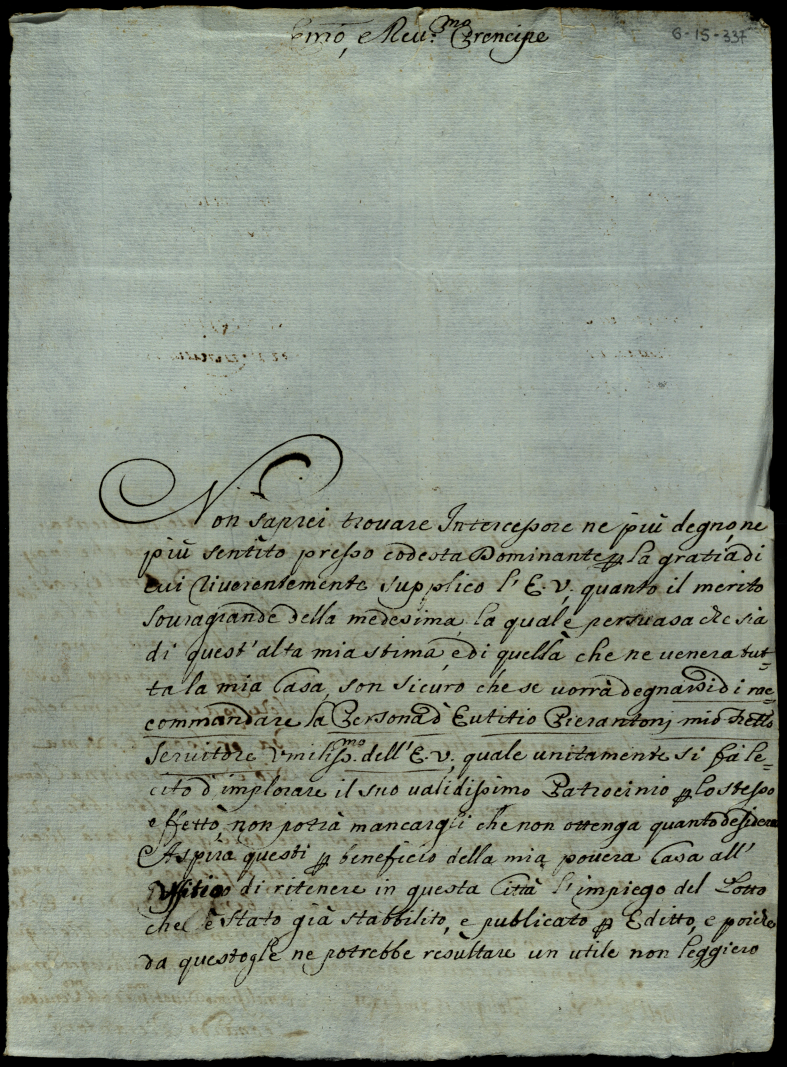 Emô, e Reu.mo Prencipe
6-15-337
Non saprei trouare Intercessore ne più degno, ne
più sentito presso codesta Dominante, p la gratia di
cui riuerentemente supplico l'E.V. quanto il merito
souragrande della medesima, la quale persuasa che sia
di quest'alta mia stima, e di quella che ne venera tut=
ta la mia Casa, son sicuro che se uorrà degnarsi di rac=
commandare la Persona d'Eutitio Pierantonj mio
Seruitore Vmiliss.mo dell'E.V. quale unitamente si fà le=
cito d'implorare il suo validissimo Patrocinio p lo stesso
effetto, non potrà mancargli che non ottenga quanto desidera
Aspira questi p beneficio della mia pouera Casa all'
di ritenere in questa Città l'impiego del Lotto
che è stato già stabbilito, e publicato p Editto, e poiche
da questo gle ne potrebbe resultare un utile non leggiero